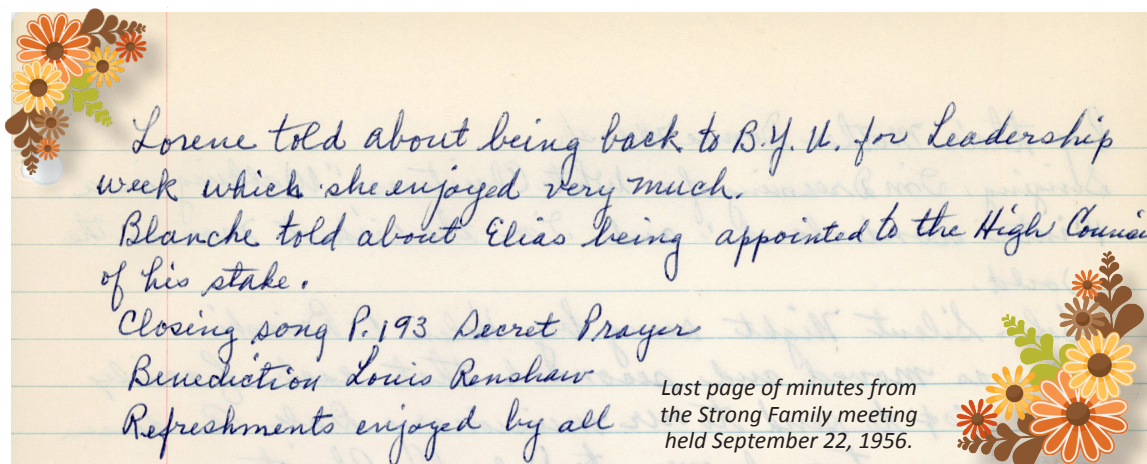 Lorene told about being back to B.Y.U. for Leadership
week which she enjoyed very much.
Blanche told about Elias being appointed to the High
of his stake.
Closing song P. 193 Secret Prayer
Benediction Louis Renshaw
Refreshments enjoyed by all
Last page of minutes from
the Strong Family meeting
held September 22, 1956.